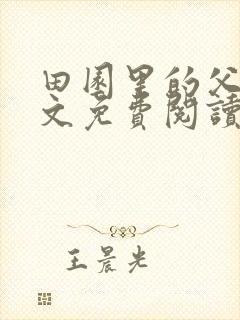 田園里的父
文免費閱讀
王晨光